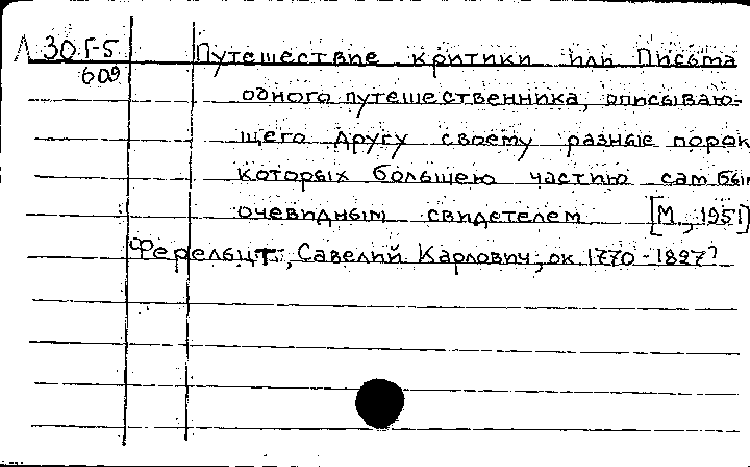 Л 30 Г-5 Путешествие критики или Письма
609
одного путешественника, описываю-
щего другу своему разные порок
которых большею частию сам был
очевидным свидетелем [М., 1951]
Ферельцт, Савелий Карлович, ок. 1770-1827?